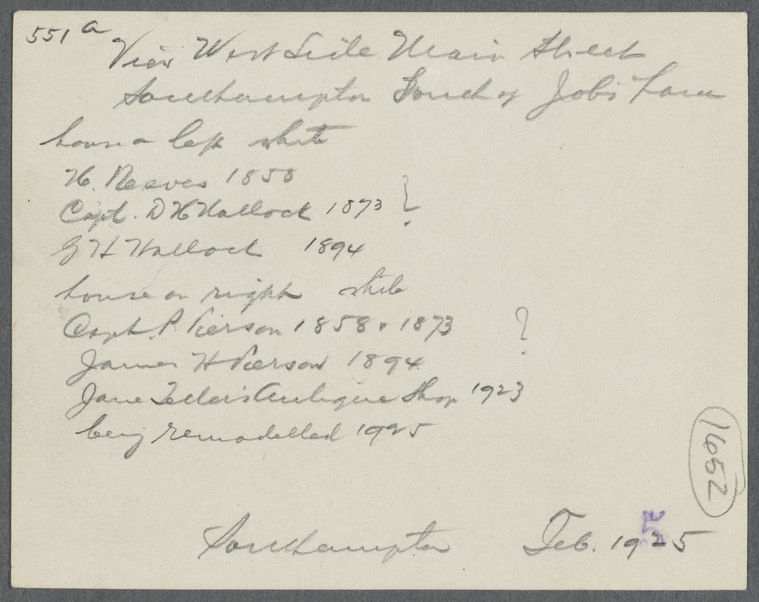 551 a
View West Side Main Street
Southampton South of Job's Lane
house on left white
H. Reeves 1858
Capt. D H Hallock 1873 ?
G H Hallock 1894
house on right white
Capt. P. Pierson 1858 & 1873 ?
James H Pierson 1894
Jane Teller's Antique Shop 1923
being remodelled 1925
1652
Southampton Feb. 1925
5